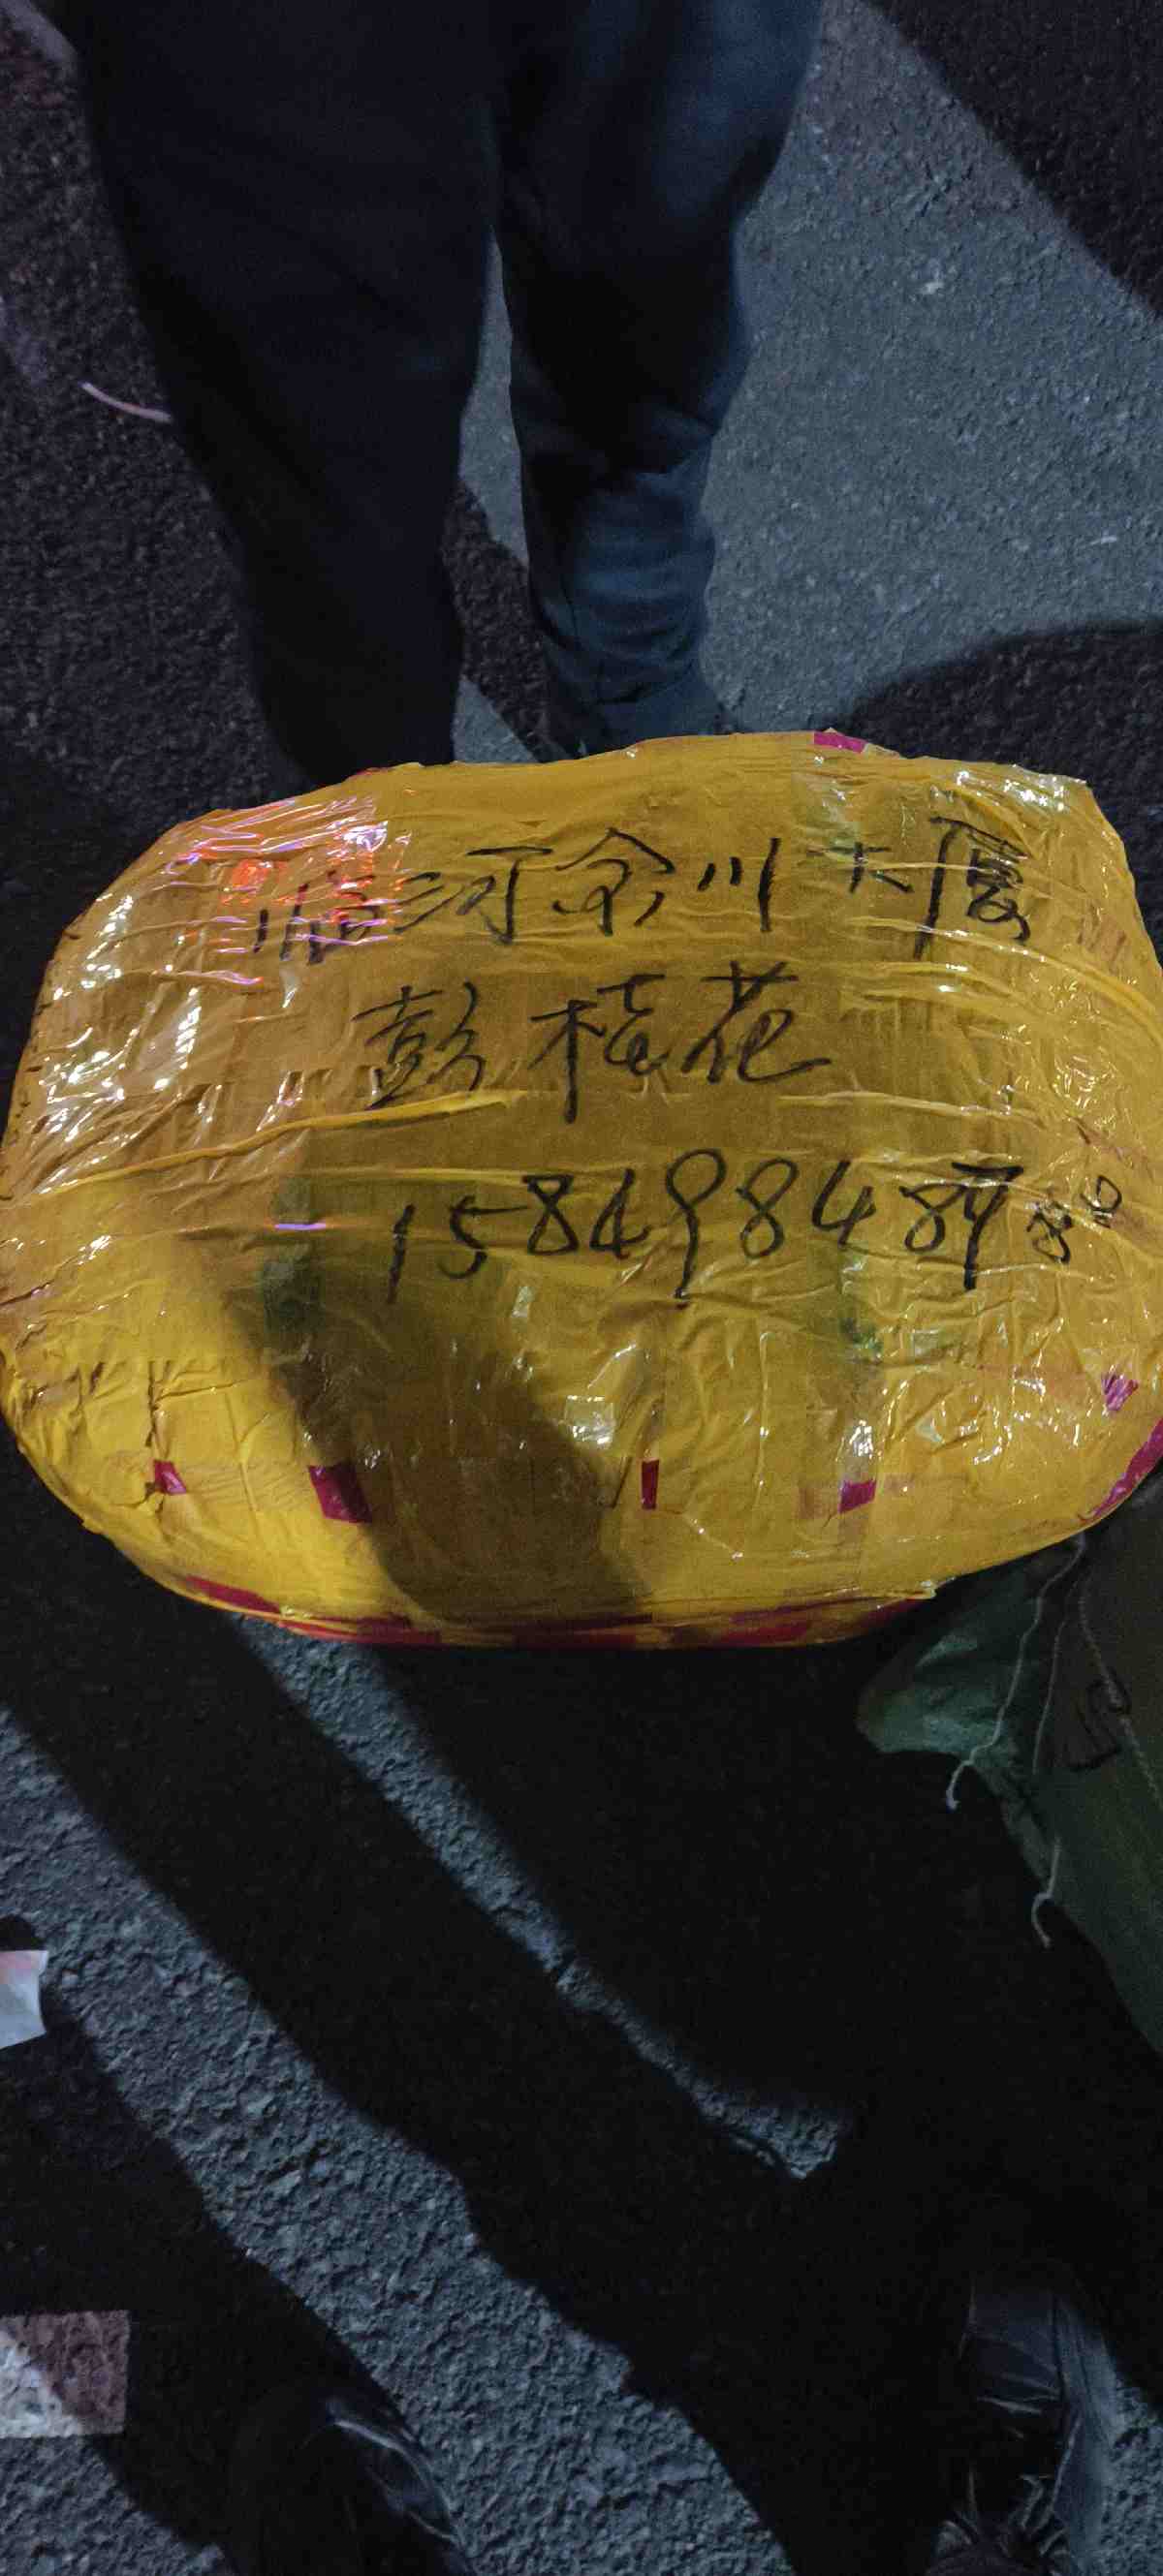 临河金川大厦
彭桂花
15849848978